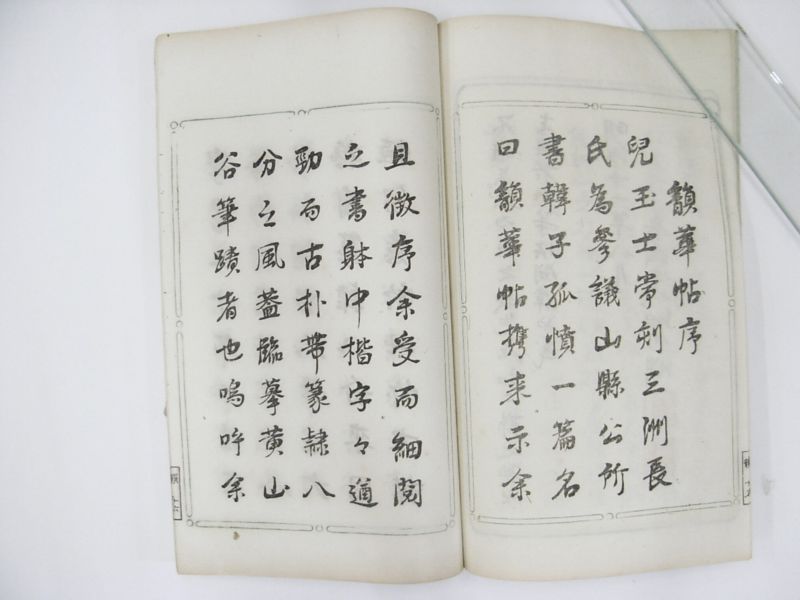 韻華帖序
兒玉士常刻三洲長
氏為參議山縣公所
書韓子孤憤一篇名
曰韻華帖携来示余
且徴序余受而細閲
之書躰中楷字々遒
勁而古朴帯篆隷八
分之風蓋臨摹黄山
谷筆蹟者也嗚呼余